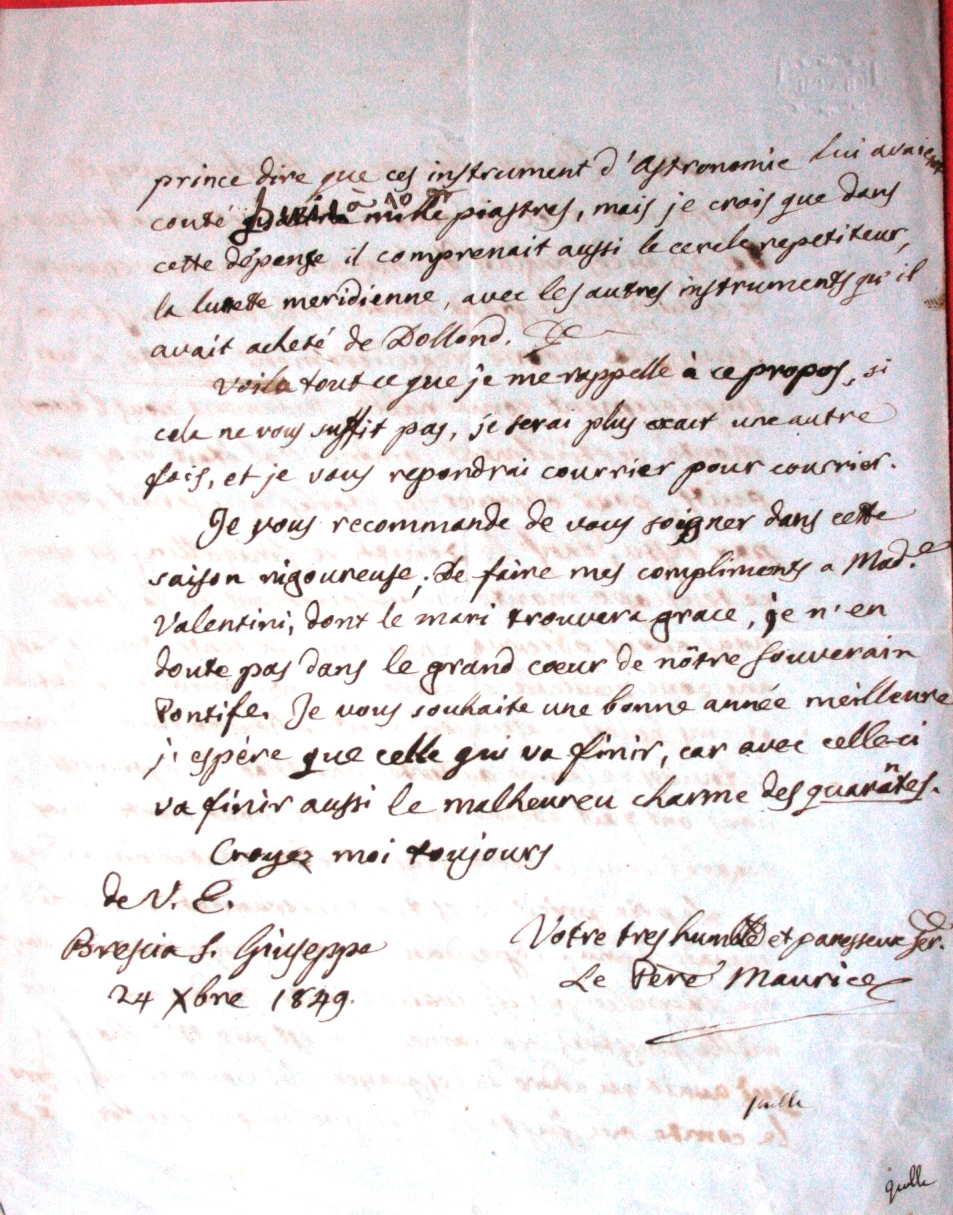 prince dire que ces instrument d'Astronomie lui avaient
couté à 10 mille piastres, mais je crois que dans
cette dépense il comprenait aussi le cercle repetiteur,
la lunette meridienne, avec les autres instruments qu'il
avait acheté de Dollond.
Voila tout ce que je me rappelle à ce propos, si
cela ne vous suffit pas, je serai plus exact une autre
fois, et je vous repondrai courrier pour courrier.
Je vous recommande de vous soigner dans cette
saison rigoureuse; De faire mes compliments a Mad.e
Valentini, dont le mari trouvera grace, je n'en
doute pas dans le grand cœur de nôtre Souverain
Pontife. Je vous souhaite une bonne année meilleure
j'espère que celle qui va finir, car avec celle-ci
va finir aussi le malheureu charme des quarantes.
Croyez moi toujours
de V. E.
Brescia S. Giuseppe
24 Xbre 1849.
Votre tres humble et paresseux Ser.
Le Père Maurice